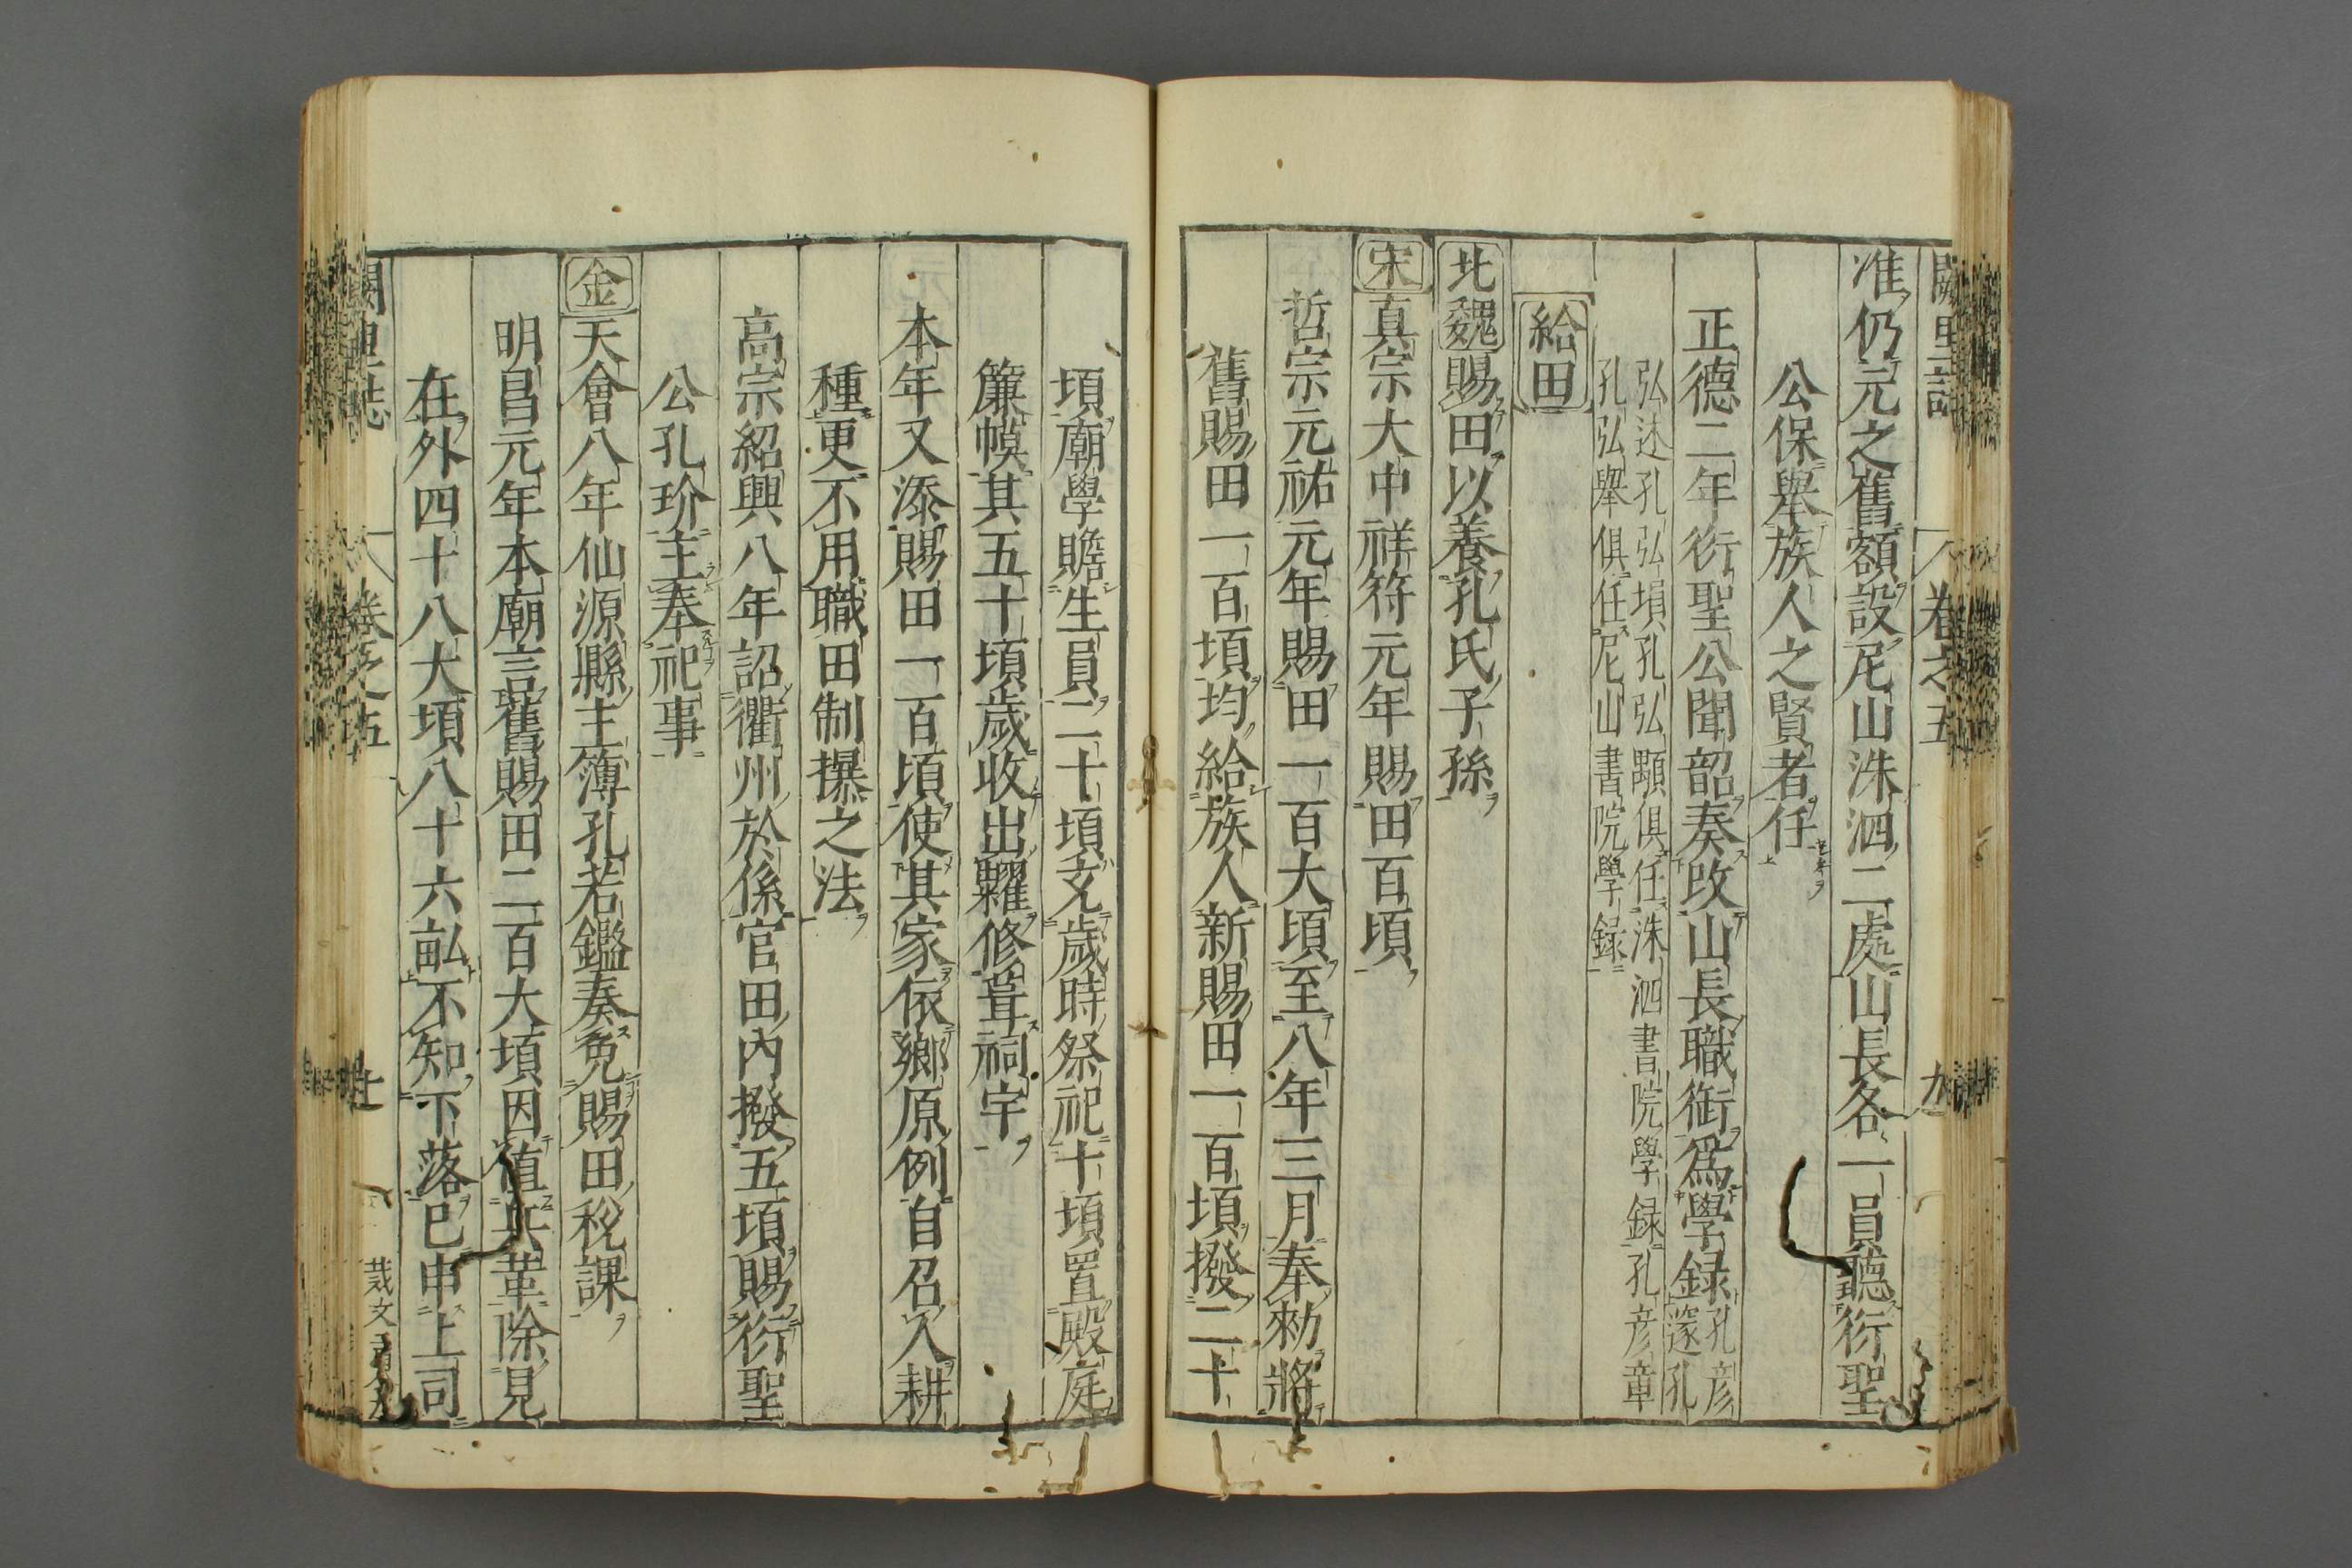 闕里誌 卷之五 九
准仍元之舊額設尼山洙泗二處山長各一員聽衍聖
公保舉族人之賢者任
正德二年衍聖公聞韶奏改山長職銜爲學録孔彦
𨗉孔
弘述孔弘塤孔弘顒俱任洙泗書院學録孔彦章
孔弘舉俱任尼山書院學録
給田
北魏賜田以養孔氏子孫
宋真宗大中祥符元年賜田百頃
哲宗元祐元年賜田一百大頃至八年三月奉勑將
舊賜田一百頃均給族人新賜田一百頃撥二十
頃廟學贍生員二十頃充歲時祭祀十頃置殿庭
簾幙其五十頃歲收出糶修葺祠宇
本年又添賜田一百頃使其家依鄉原例自召人耕
種更不用職田制撡之法
高宗紹興八年詔衢州於係官田內撥五頃賜衍聖
公孔玠主奉祀事
金天會八年仙源縣主簿孔若鑑奏免賜田稅課
明昌元年本廟言舊賜田二百大頃因值兵革除見
在外四十八大頃八十六畝不知下落已申上司
闕里誌 卷之五